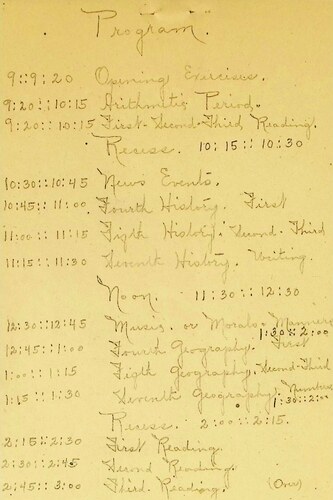 Program.
9::9:20 Opening Exercises.
9:20::10:15 Arithmetic Period.
9:20::10:15 First-Second-Third Reading.
Recess. 10:15::10:30
10:30::10:45 News Events.
10:45::11:00 Fourth History. First
11:00::11:15 Fifth History. Second-Third
11:15::11:30 Seventh History. Writing.
Noon. 11:30::12:30
12:30::12:45 Music or Morals-Manners
1:30::2:00
12:45::1:00 Fourth Geography. First
1:00::1:15 Fifth Geography. Second-Third
1:15::1:30 Seventh Geography. Numbers
1:30::2:00
Recess. 2:00::2:15.
2:15::2:30 First Reading.
2:30::2:45 Second Reading.
2:45::3:00 Third Reading. (Over)